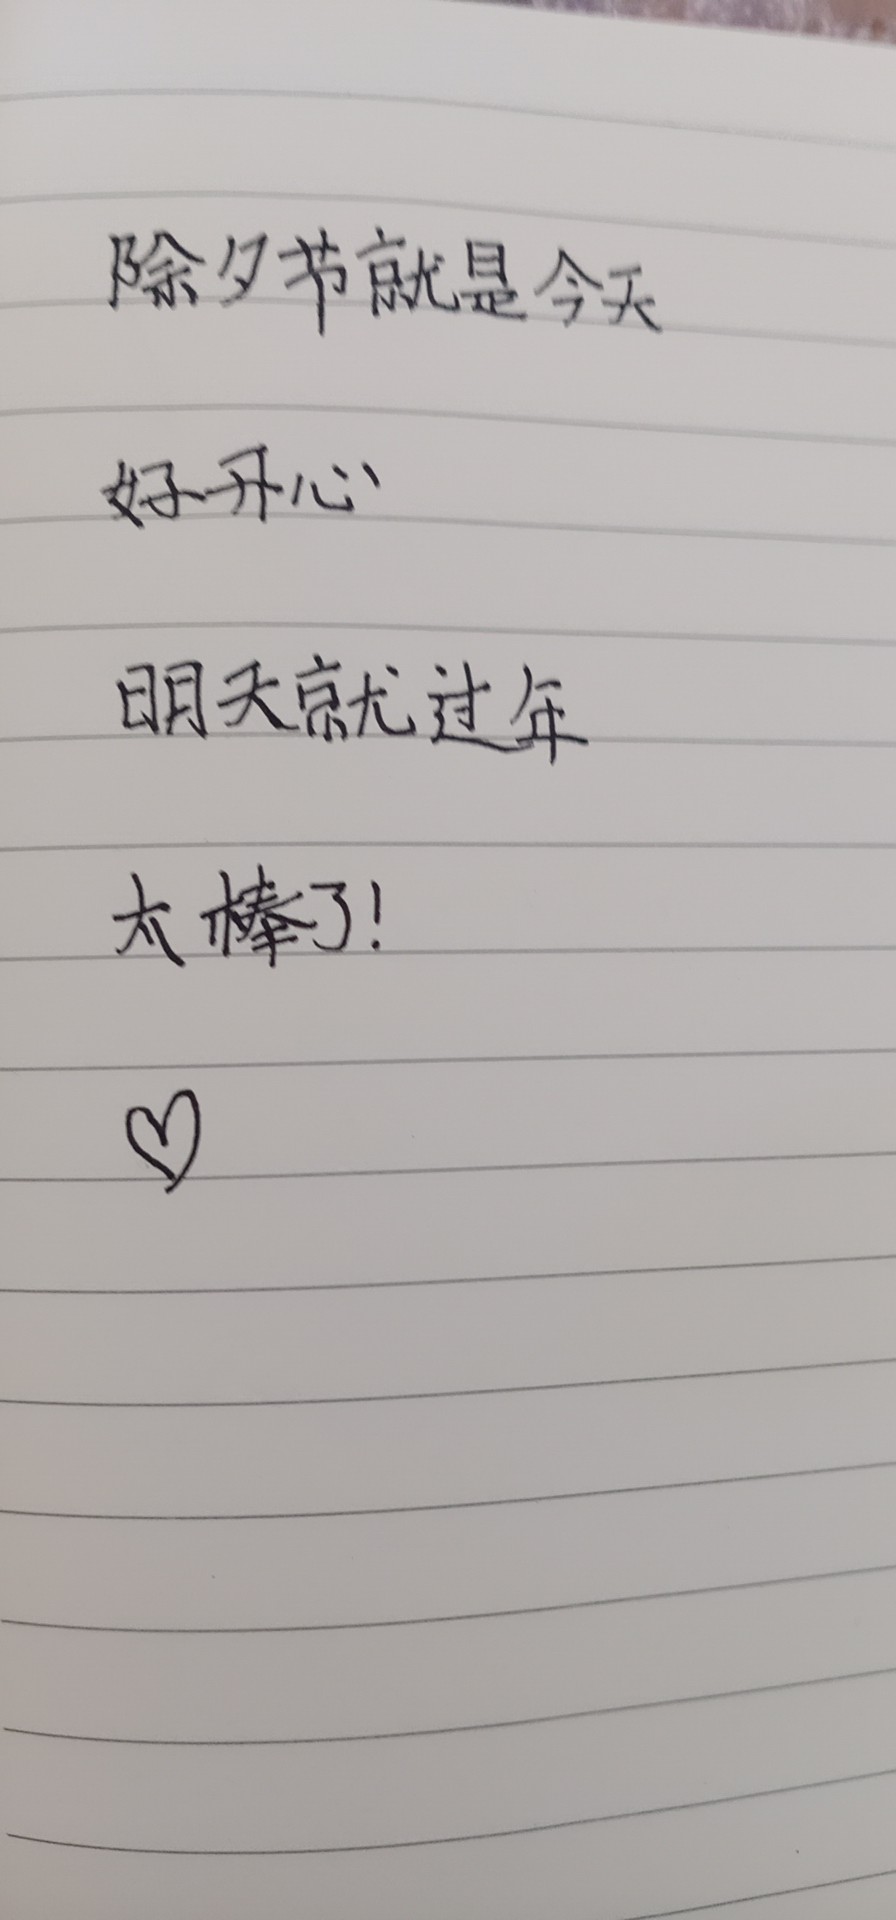 除夕节就是今天
好开心
明天就过年
太棒了!
♡